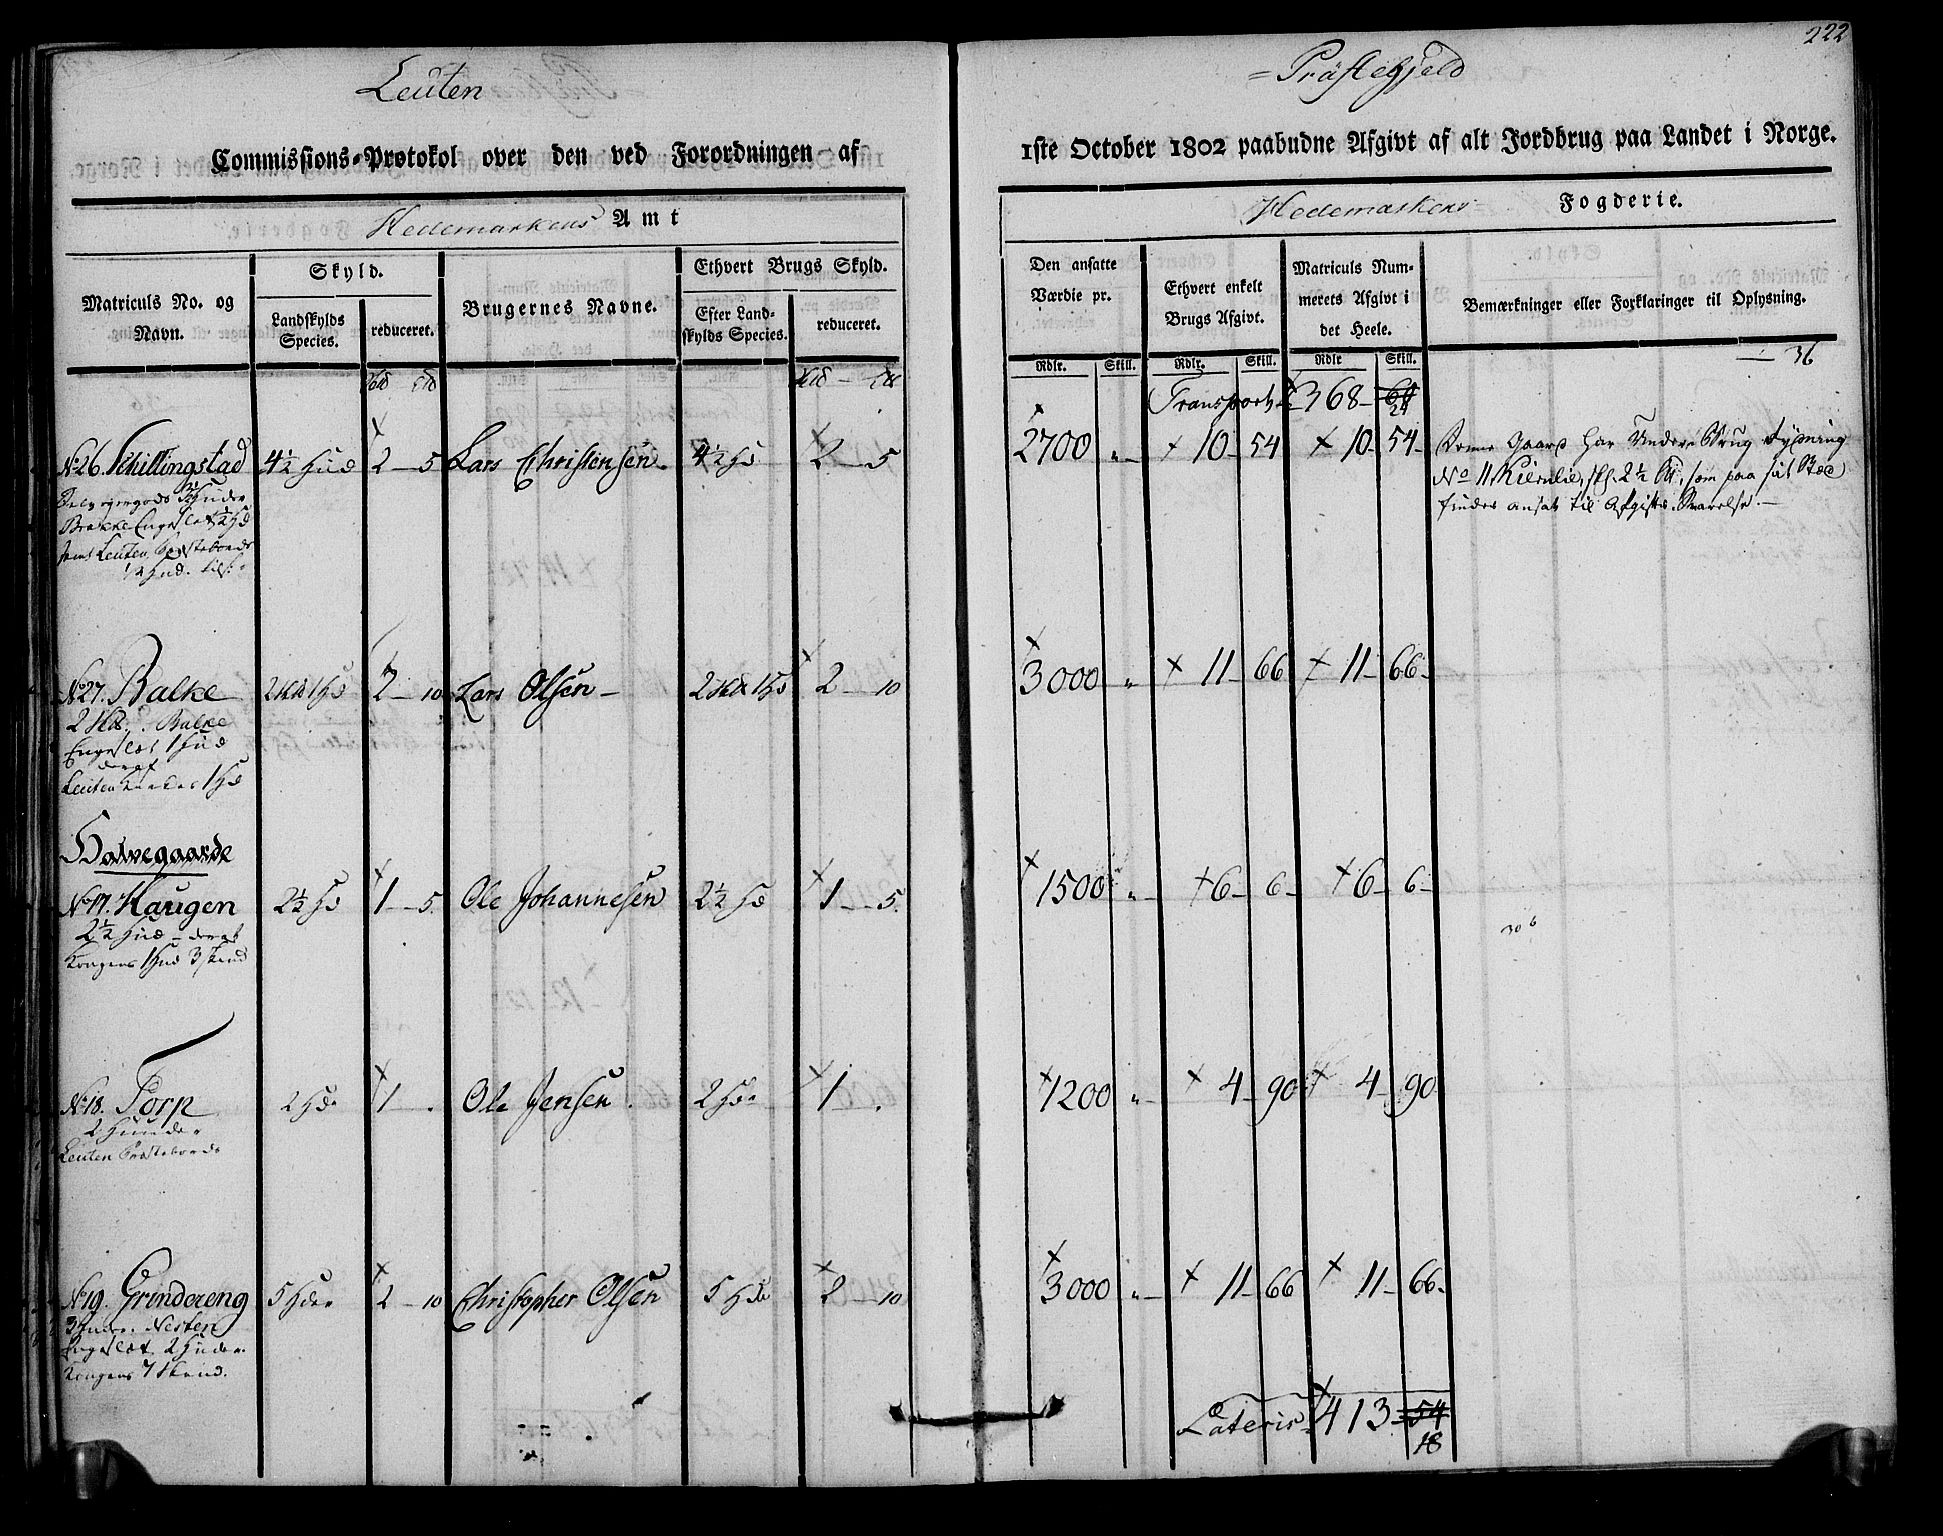 222
Leuten = Præstegjeld
Commissions-Protokol over den ved Forordningen af 1ste October 1802 paabudne Afgivt af alt Jordbrug paa Landet i Norge.
Hedemarkens Amt
Hedemarkens Fogderie.
Matriculs No. og Navn.
Skyld.
Landskylds Species.
reduceret.
Brugernes Navne.
Ethvert Brugs Skyld.
Efter Landskylds Species.
reduceret.
Den ansatte Værdie pr.
Ethvert enkelt Brugs Afgivt.
Matriculs Nummerets Afgivt i det Heele.
Bemærkninger eller Forklaringer til Oplysning.
Rdlr. Skill. Rdlr. Skill. Rdlr Skill.
36
Transport 368 - 24
No 26. Schillingstad 4½ Hud 2 - 5 Lars Christensen 4½ Hd 2 - 5 2700 „ 10 54 10 - 54
Denne Gaard har Under Brug
No 11 2½ som paa sit Sted
findes ansat til Afgifts Svarelse. -
samt Leuten
½ Hud.
No 27. Balke 2 1 Hd 2 - 10 Lars Olsen 2 1 Hd 2 - 10 3000 „ 11 - 66 11 - 66
2 Balke
Engeslet 1 Hud
deraf
Leuten 1 Hd
Halvegaarde
No 17. Haugen 2½ Hd 1 - 5. Ole Johannesen 2½ Hd 1 - 5. 1500 „ 6 - 6 - 6 - 6 -
2½ Hud - deraf
Kongens 1 Hud 3 Skind
No 18. Torp 2 Hde 1 - . Ole Jensen. 2 Hde 1 - . 1200 „ 4 - 90 4 - 90
2 Hunder
Leuten Præstebords
No 19. Grindereng 5 Hder 2 - 10 Christopher Olsen 5 Hde 2 - 10 3000 „ 11 - 66 11 - 66
3 Huder. Nesten
Engeslet. 2 Huder.
Kongens 7 Skind.
Lateris 413 - 54
18